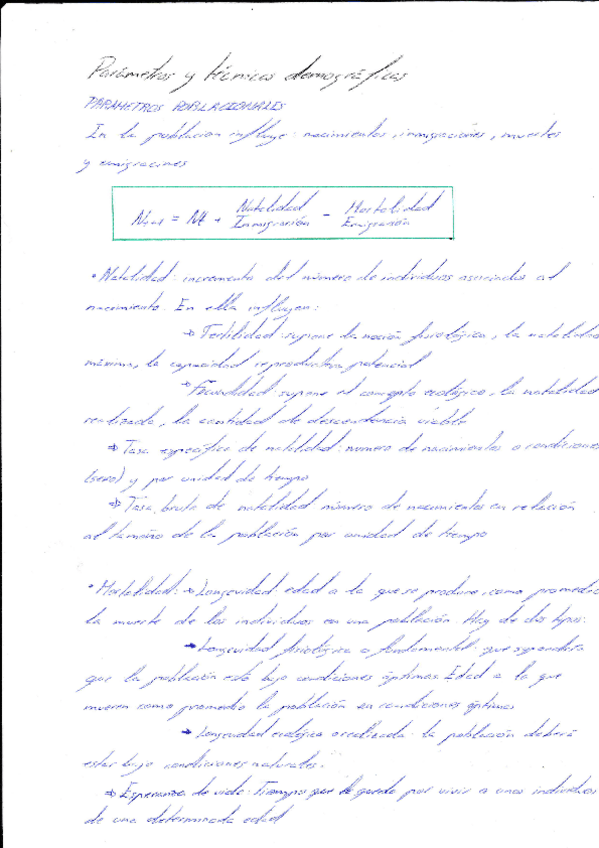 Parámetros y técnicas demográficas
PARÁMETROS POBLACIONALES
En la población influye: nacimientos, inmigraciones, muertes
y emigraciones
Nt+1 = Nt + Natalidad - Mortalidad
Inmigración Emigración
• Natalidad: incremento del número de individuos asociados al
nacimiento. En ella influyen:
→ Fertilidad: supone la noción fisiológica, la natalidad
máxima, la capacidad reproductiva potencial
→ Fecundidad: supone el concepto ecológico, la natalidad
realizada, la cantidad de descendencia viable
→ Tasa específica de natalidad: numero de nacimientos a condiciones
(sexo) y por unidad de tiempo
→ Tasa bruta de natalidad: número de nacimientos en relación
al tamaño de la población por unidad de tiempo
• Mortalidad: → Longevidad: edad a la que se produce, como promedio
la muerte de los individuos en una población. Hay de dos tipos:
→ Longevidad fisiológica o fundamental: que
que la población está bajo condiciones óptimas. Edad a la que
mueren como promedio la población en condiciones óptimas
→ Longevidad ecológica o realizada: la población deberá
estar bajo condiciones naturales.
→ Esperanza de vida: Tiempo que le queda por vivir a unos individuos
de una determinada edad